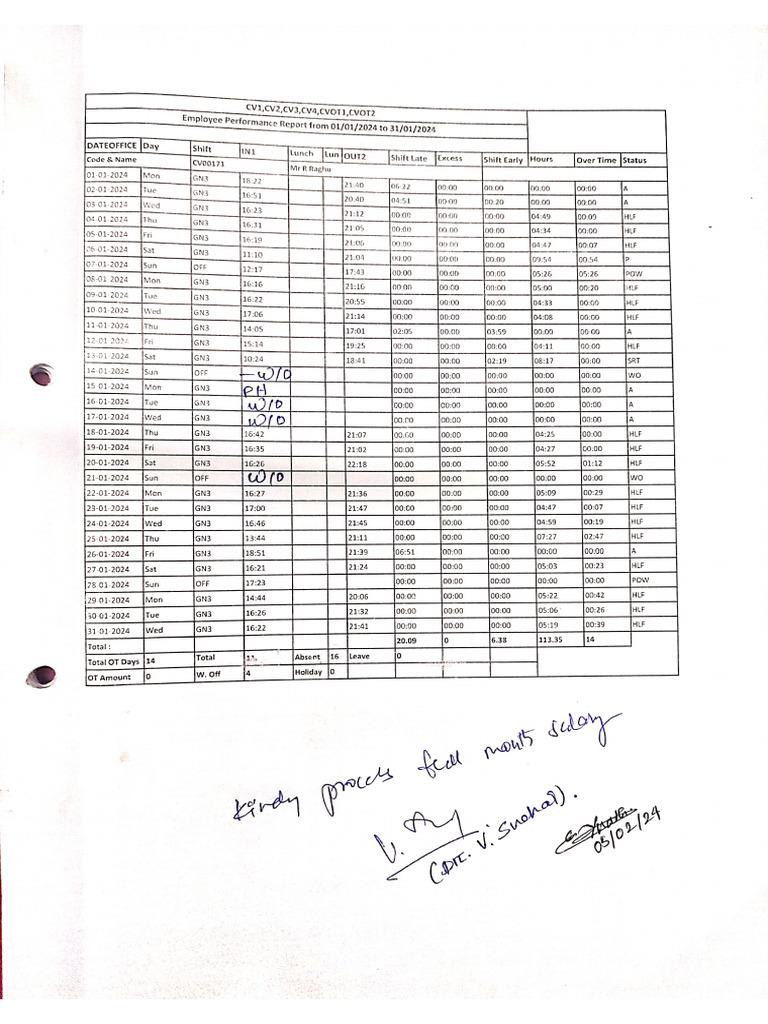 CV1,CV2,CV3,CV4,CVOT1,CVOT2
Employee Performance Report from 01/01/2024 to 31/01/2024
DATEOFFICE Day Shift IN1 Lunch Lun OUT2 Shift Late Excess Shift Early Hours Over Time Status
Code & Name CV00171 Mr R Raghu
01-01-2024 Mon GN3 18:22 21:40 06:22 00:00 00:00 00:00 00:00 A
02-01-2024 Tue GN3 16:51 20:40 04:51 00:00 00:20 00:00 00:00 A
03-01-2024 Wed GN3 16:23 21:12 00:00 00:00 00:00 04:49 00:09 HLF
04-01-2024 Thu GN3 16:31 21:05 00:00 00:00 00:00 04:34 00:00 HLF
05-01-2024 Fri GN3 16:19 21:06 00:00 00:00 00:00 04:47 00:07 HLF
06-01-2024 Sat GN3 11:10 21:04 00:00 00:00 00:00 09:54 00:54 P
07-01-2024 Sun OFF 12:17 17:43 00:00 00:00 00:00 05:26 05:26 POW
08-01-2024 Mon GN3 16:16 21:16 00:00 00:00 00:00 05:00 00:20 HLF
09-01-2024 Tue GN3 16:22 20:55 00:00 00:00 00:00 04:33 00:00 HLF
10-01-2024 Wed GN3 17:06 21:14 00:00 00:00 00:00 04:08 00:00 HLF
11-01-2024 Thu GN3 14:05 17:01 02:05 00:00 03:59 00:00 00:00 A
12-01-2024 Fri GN3 15:14 19:25 00:00 00:00 00:00 04:11 00:00 HLF
13-01-2024 Sat GN3 10:24 18:41 00:00 00:00 02:19 08:17 00:00 SRT
14-01-2024 Sun OFF – W/O 00:00 00:00 00:00 00:00 00:00 WO
15-01-2024 Mon GN3 PH 00:00 00:00 00:00 00:00 00:00 A
16-01-2024 Tue GN3 W/O 00:00 00:00 00:00 00:00 00:00 A
17-01-2024 Wed GN3 W/O 00:00 00:00 00:00 00:00 00:00 A
18-01-2024 Thu GN3 16:42 21:07 00:00 00:00 00:00 04:25 00:00 HLF
19-01-2024 Fri GN3 16:35 21:02 00:00 00:00 00:00 04:27 00:00 HLF
20-01-2024 Sat GN3 16:26 22:18 00:00 00:00 00:00 05:52 01:12 HLF
21-01-2024 Sun OFF W/O 00:00 00:00 00:00 00:00 00:00 WO
22-01-2024 Mon GN3 16:27 21:36 00:00 00:00 00:00 05:09 00:29 HLF
23-01-2024 Tue GN3 17:00 21:47 00:00 00:00 00:00 04:47 00:07 HLF
24-01-2024 Wed GN3 16:46 21:45 00:00 00:00 00:00 04:59 00:19 HLF
25-01-2024 Thu GN3 13:44 21:11 00:00 00:00 00:00 07:27 02:47 HLF
26-01-2024 Fri GN3 18:51 21:39 06:51 00:00 00:00 00:00 00:00 A
27-01-2024 Sat GN3 16:21 21:24 00:00 00:00 00:00 05:03 00:23 HLF
28-01-2024 Sun OFF 17:23 00:00 00:00 00:00 00:00 00:00 POW
29-01-2024 Mon GN3 14:44 20:06 00:00 00:00 00:00 05:22 00:42 HLF
30-01-2024 Tue GN3 16:26 21:32 00:00 00:00 00:00 05:06 00:26 HLF
31-01-2024 Wed GN3 16:22 21:41 00:00 00:00 00:00 05:19 00:39 HLF
Total : 20.09 0 6.38 113.35 14
Total OT Days 14 Total Absent 16 Leave 0
OT Amount 0 W. Off 4 Holiday 0
Kindly process full month salary
(DR. V. Snehal).
05/02/24